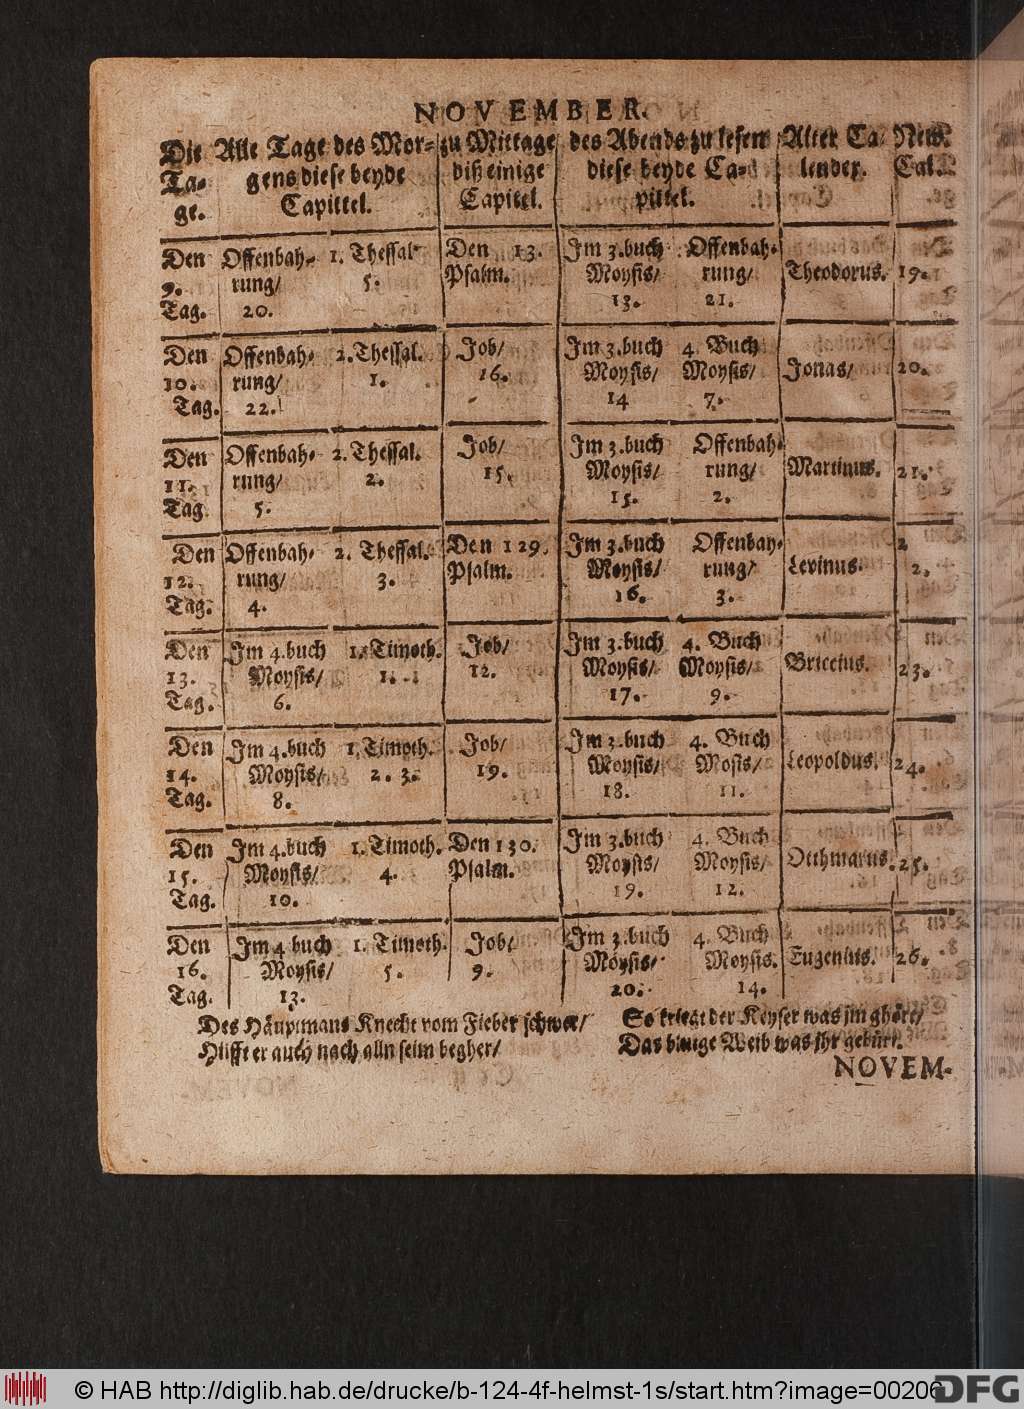 NOVEMBER.
Die Alle Tage des Mor- zu Mittage des Abends zu lesen Alter Ca New.
Ta- gens diese beyde diß einige diese beyde Ca- lender. Cal.
ge. Capittel. Capitel. pittel.
Den Offenbah- 1. Thessal- Den 13. Im 3. buch Offenbah- Theodorus. 19.
9. rung/ 5. Psalm. Moysis/ rung/
Tag. 20. 13. 21.
Den Offenbah- 2. Thessal. Job/ Im 3. buch 4. Buch Jonas/ 20.
10. rung/ 1. 16. Moysis/ Moysis/
Tag. 22. 14 7.
Den Offenbah- 2. Thessal. Job/ Im 3. buch Offenbah- Martinus. 21.
11. rung/ 2. 15. Moysis/ rung/
Tag. 5. 15. 2.
Den Offenbah- 2. Thessal. Den 129. Im 3. buch Offenbah- Levinus. 2
12. rung/ 3. Psalm. Moysis/ rung/ 2.
Tag. 4. 16. 3.
Den Im 4. buch 1. Timoth. Job/ Im 3. buch 4. Buch Briccius. 23.
13. Moysis/ 1. 12. Moysis/ Moysis/
Tag. 6. 17. 9.
Den Im 4. buch 1. Timoth. Job/ Im 3. buch 4. Buch Leopoldus. 24.
14. Moysis/ 2. 3. 19. Moysis/ Mosis/
Tag. 8. 18. 11.
Den Im 4. buch 1. Timoth. Den 130. Im 3. buch 4. Buch Otthmarus. 25.
15. Moysis/ 4. Psalm. Moysis/ Moysis/
Tag. 10. 19. 12.
Den Im 4 buch 1. Timoth. Job/ Im 3. buch 4. Buch Eugenius. 26.
16. Moysis/ 5. 9. Moysis/ Moysis.
Tag. 13. 20. 14.
Des Häuptmans Knecht vom Fieber schwer/ So kriegt der Keyser was jm ghört/
Hilfft er auch nach alln seim begher/ Das blutige Weib was ihr gebürt.
NOVEM-
© HAB http://diglib.hab.de/drucke/b-124-4f-helmst-1s/start.htm?image=00206
DFG